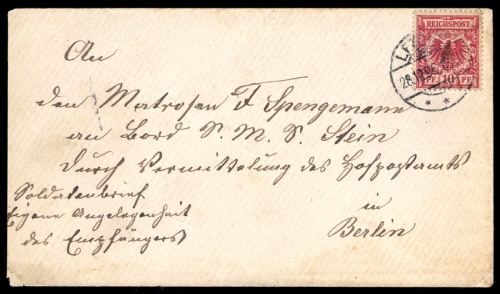 REICHSPOST
PF 10 PF
An
den Matrosen F Spengemann
an Bord S. M. S. Stein
Durch Vermittelung des Hofpostamts
in
Berlin
Soldatenbrief
Eigene Angelegenheit
des Empfängers